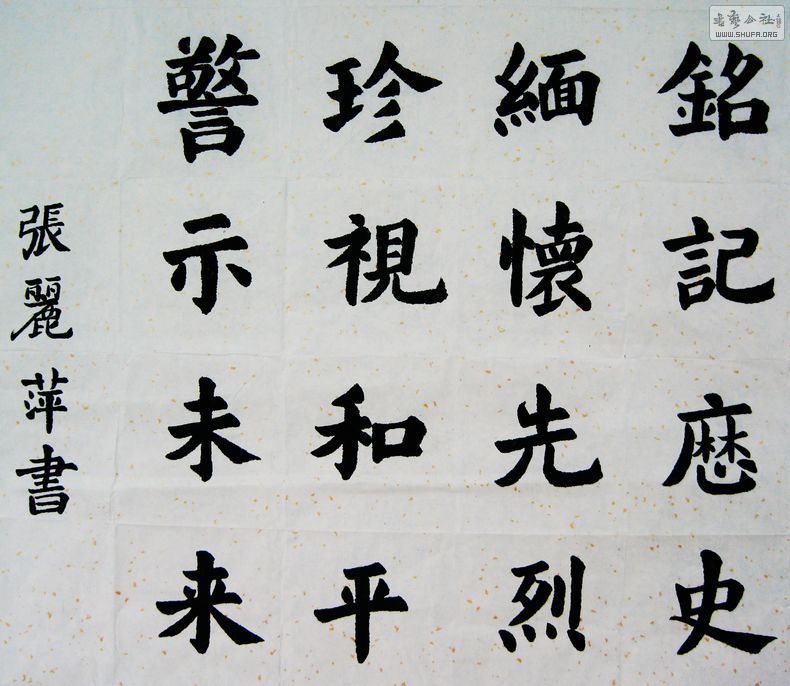 銘記厯史
緬懷先烈
珍視和平
警示未来
張麗萍書
WWW.SHUFA.ORG